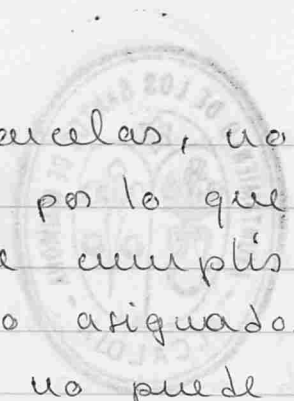 arcelas, no
por lo que
e cumplis
o asignado.
no puede